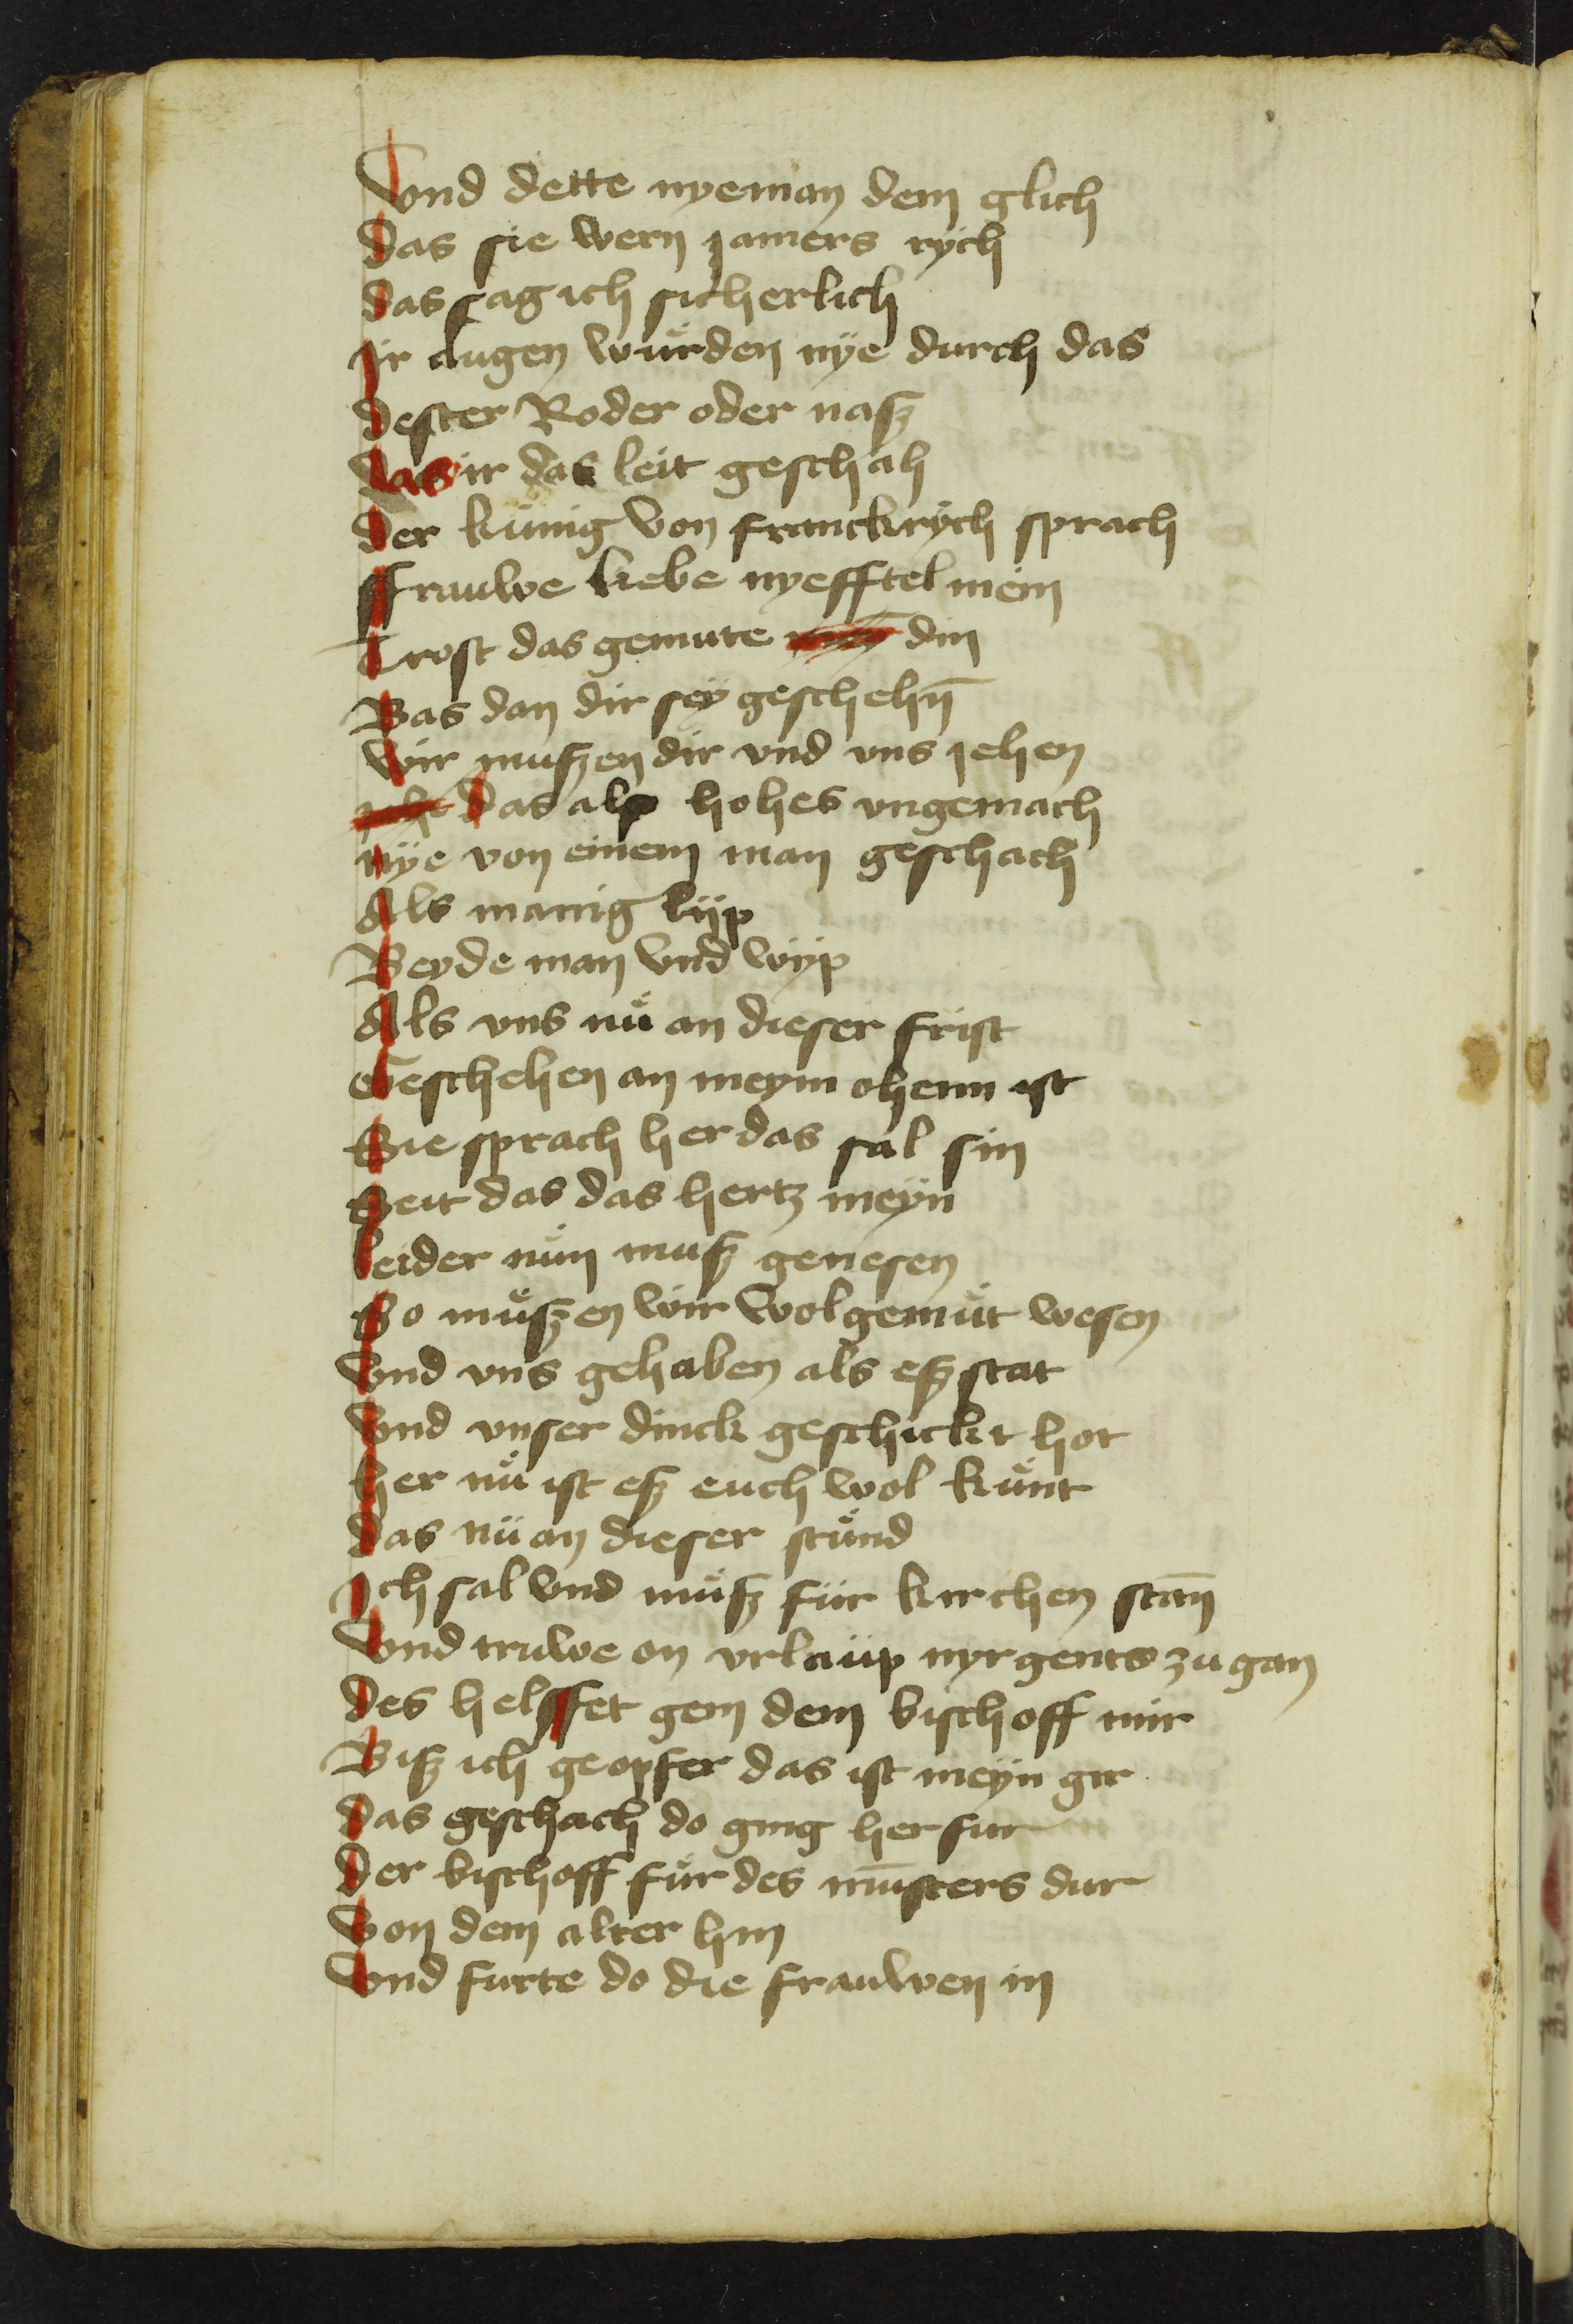 Vnd dette nyeman dem glich
das sie wern jamers rych
das sag ich sicherlich
Ir augen wůrden nÿe durch das
dester Roder oder nasz
das ir das leit geschah
der kůnig von franckrÿch sprach
ffrauwe liebe nyefftel mein
Trost das gemute din
Bas dan dir seÿ geschehn̄
wir muszen dir vnd vns jehen
das als hohes vngemach
nÿe von einem man geschach
Als manig lijp
Beyde man vnd wijp
Als vns nů an dieser frist
Geschehen an meym ohem ist
Sie sprach her das sal sin
Seit das das hertz meÿn
leider nůn musz genesen
So můszen wir wolgemůt wesen
Vnd vns gehaben als esz stat
Vnd vnser dinck geschickt hot
her nů ist esz euch wol kůnt
das nü an dieser stůnd
Ich sal vnd můsz für kirchen stan̄
Vnd truwe on vrlaüp nyrgents zu gan
des helffet gem dem bischoff mir
Bisz ich geopfer das ist meÿn gir
das geschach do ging her fur
der bischoff fůr des mūsters dur
Von dem alter hin
Vnd furte do die frauwen in